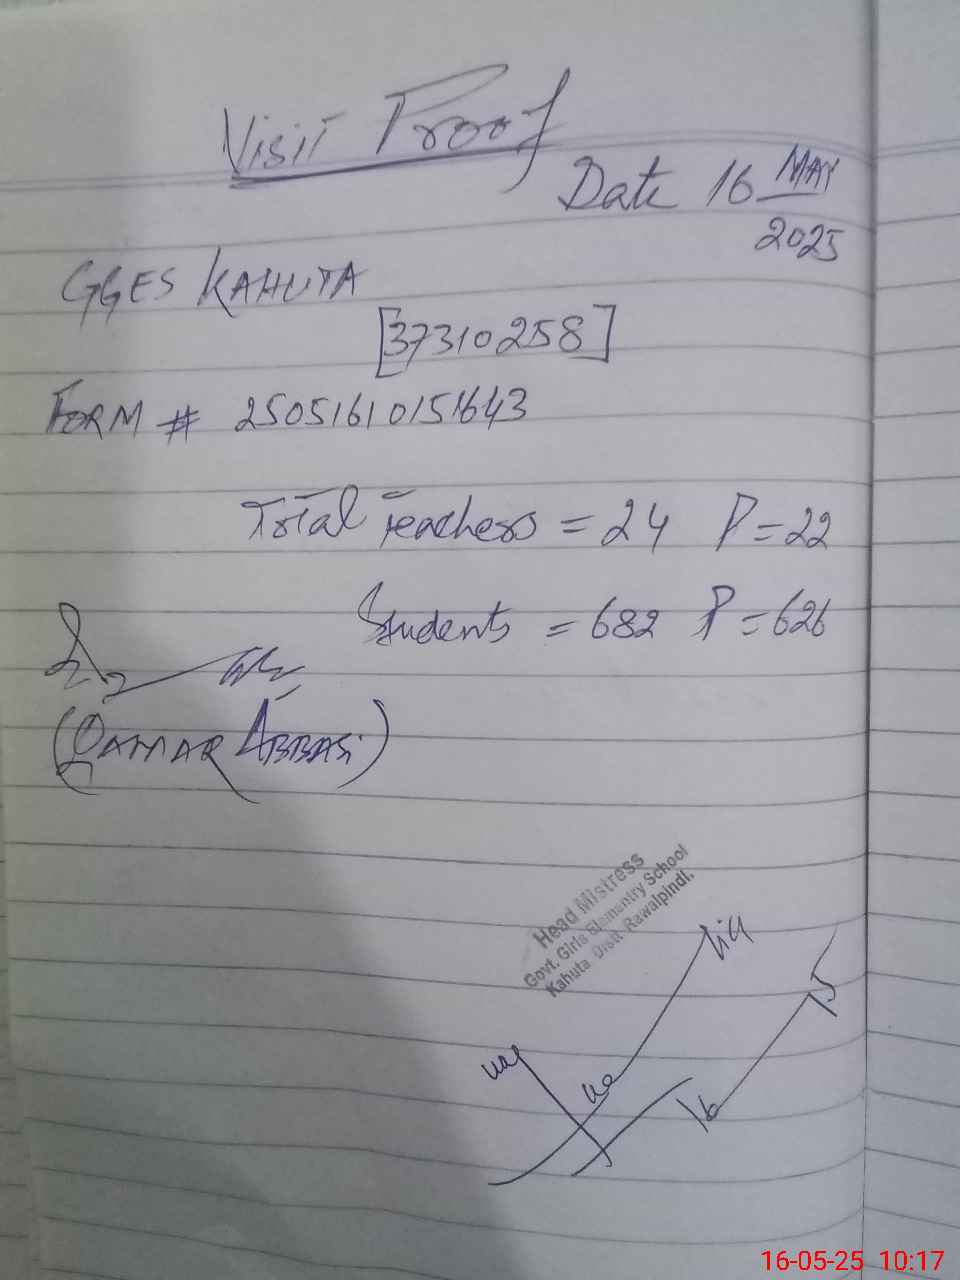 Visit Proof
Date 16 MAY
2025
GGES KAHUTA
[37310258]
FORM # 25051610151643
Total Teachers = 24 P = 22
Students = 682 P = 626
(QAMAR ABBASi)
Head Mistress
Govt. Girls Elementry School
Kahuta Distt. Rawalpindi.
16-05-25 10:17